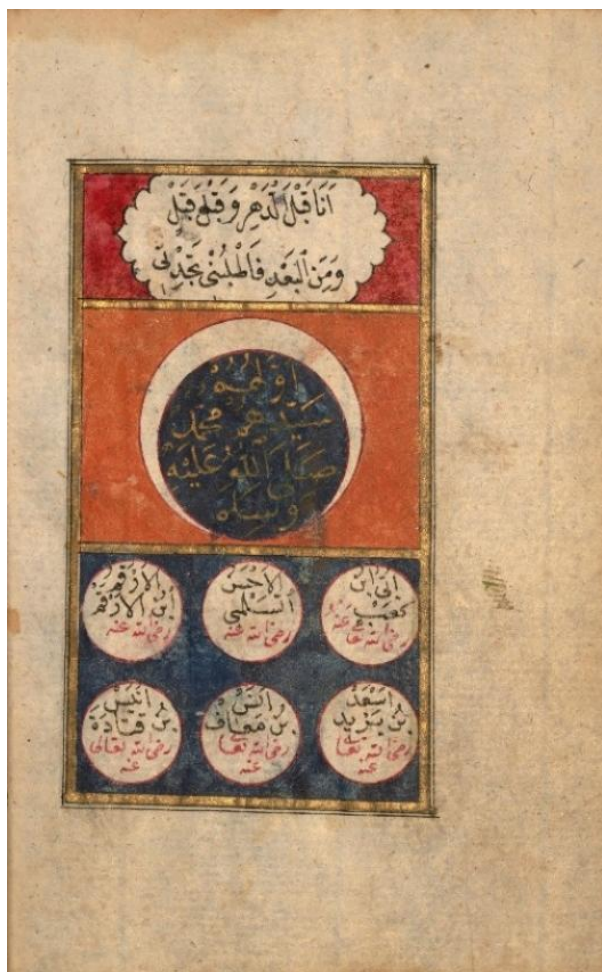 اَنَا قَبْلَ الدَهْرِ وَقَبْلَ قَبْلْ
وَمِنَ الْبَعْدِ فَاطْلُبْنِى تَجِدْنِى
اولهم
سيدهم محمد
صلى الله عليه
وسلم
ابى ابن
كعب
رضى الله تعالى عنه
الاخنس
السلمى
رضى الله عنه
الارقم
ابن الارقم
رضى الله عنه
اسعد
بن يزيد
رضى الله تعالى
عنه
انس
بن معاذ
رضى الله تعالى
عنه
انيس
بن قتادة
رضى الله تعالى
عنه